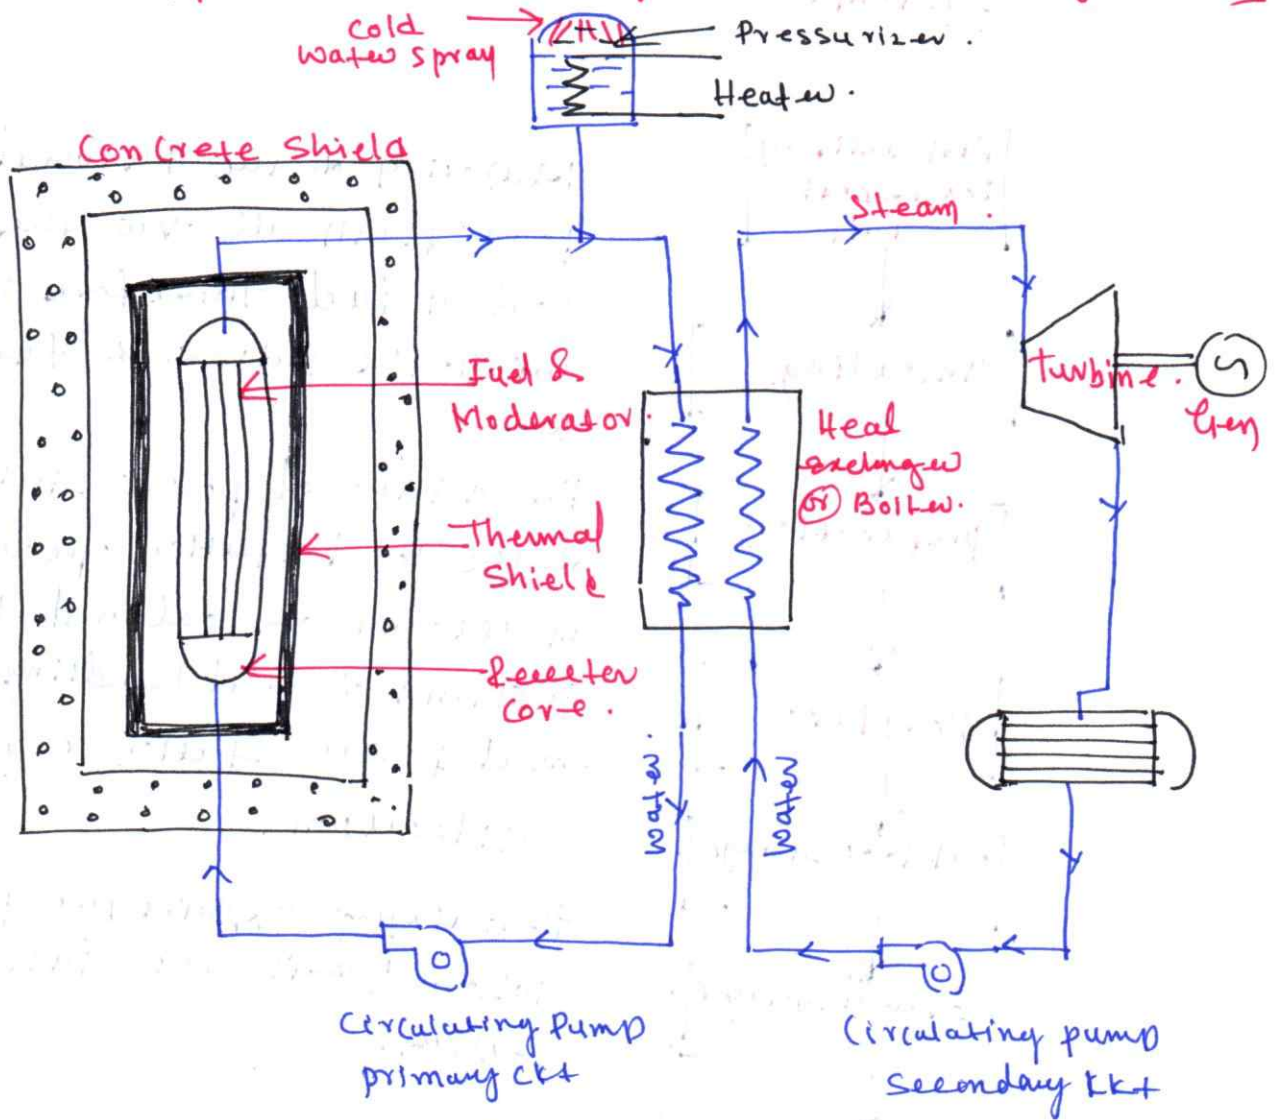 Cold
Water spray
Pressurizer.
Heater.
Concrete Shield
Steam.
Fuel &
Moderator.
Turbine.
Gen
Heal
exchnger
or Boiler.
Thermal
Shield
Reector
core.
Water.
Water
Circulating Pump
primary ckt
Circulating pump
Secondary ckt